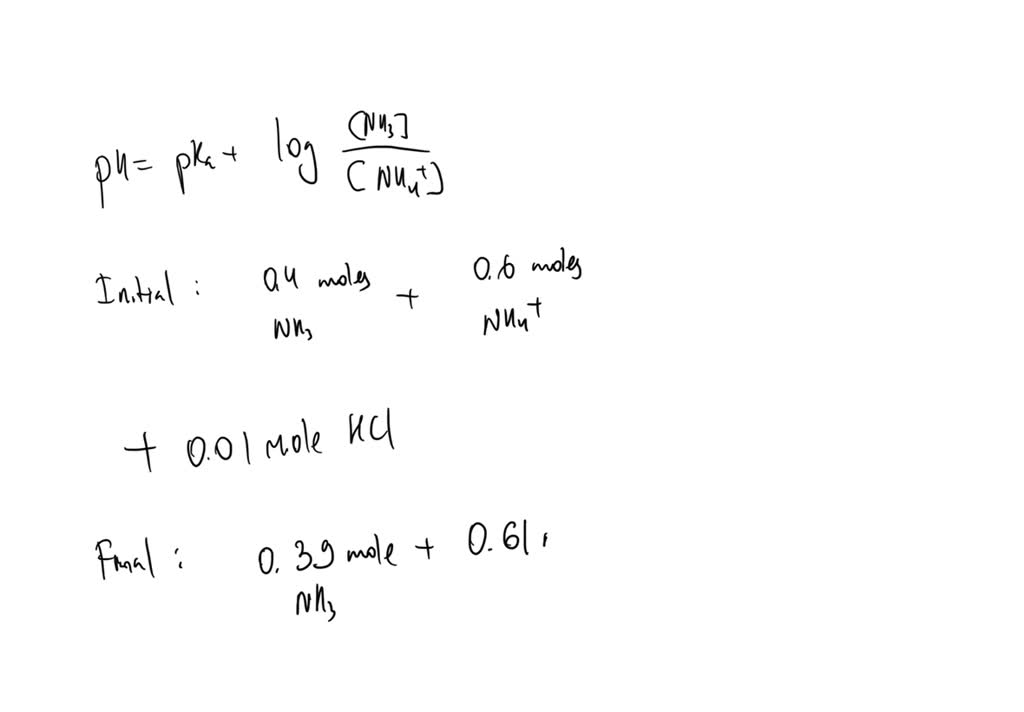 pH = pKa + log [NH3] / [NH4+]
Initial : 0.4 moles NH3 + 0.6 moles NH4+
+ 0.01 mole HCl
Final : 0.39 mole NH3 + 0.61